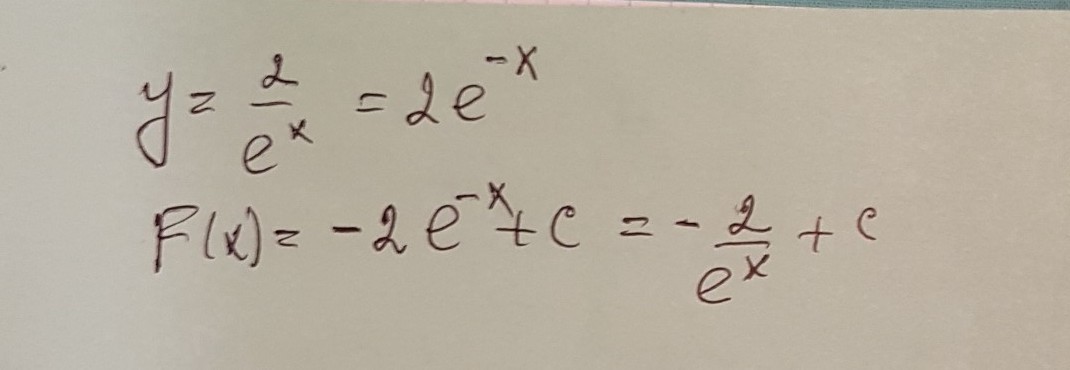 y = 2/e^x = 2e^-x
F(x) = -2e^-x + c = - 2/e^x + c